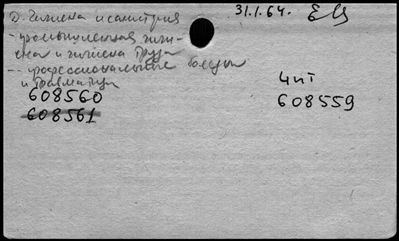 Д Гигиена и санитария
31.1.64. ЕЦ
- промышленная гиги-
ена и гигиена труда
-- профессиональные болезни
и травматизм
Чит
608560
608559
608561